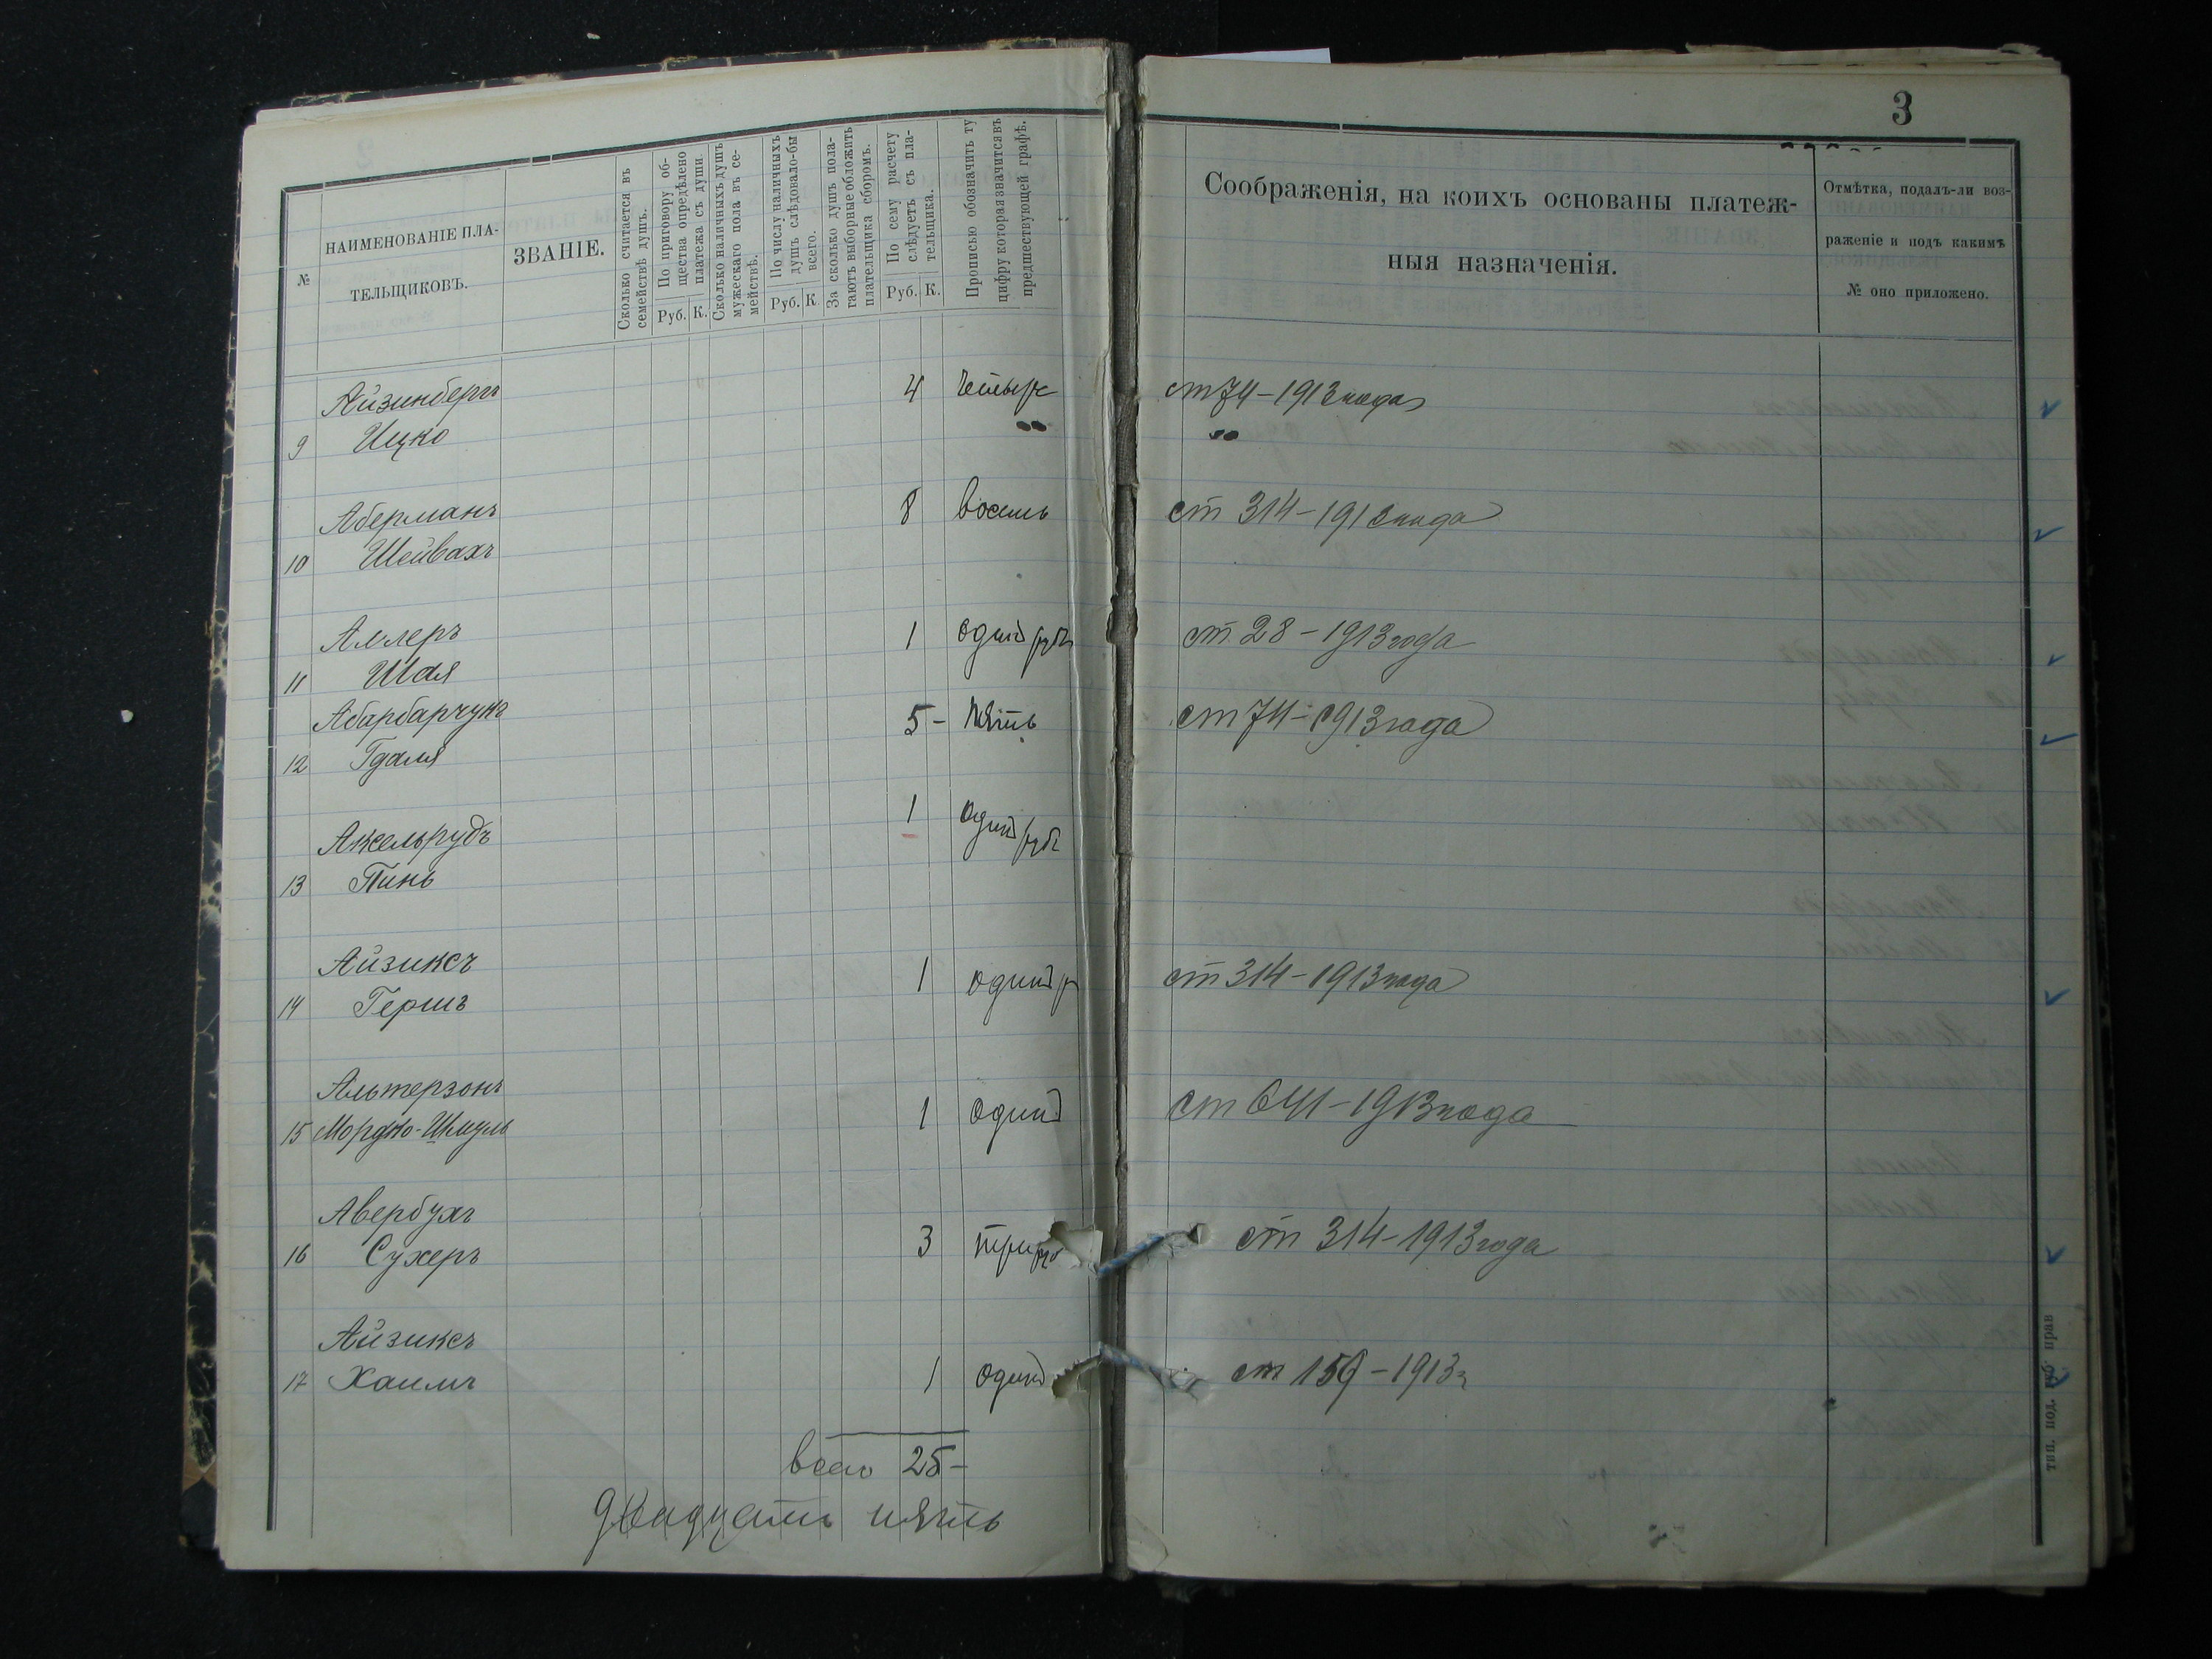 3
№
НАИМЕНОВАНІЕ ПЛА-
ТЕЛЬЩИКОВЪ.
ЗВАНІЕ.
Сколько считается въ
семействѣ душъ.
По приговору об-
щества опредѣлено
платежа съ души.
Руб. К.
Сколько наличныхъ душъ
мужескаго пола въ се-
мействѣ.
По числу наличныхъ
душъ слѣдовало-бы
всего.
Руб. К
За сколько душъ пола-
гаютъ выборные обложить
плательщика сборомъ.
По сему расчету
слѣдуетъ съ пла-
тельщика.
Руб. К.
Прописью обозначить ту
цифру которая значится въ
предшествующей графѣ.
Соображенія, на коихъ основаны платеж-
ныя назначенія.
Отмѣтка, подалъ-ли воз-
раженіе и подъ какимъ
№ оно приложено.
Айзинбергъ 4 четыре ст 74-1913 года
9 Ицко
Аберманъ 8 восемь ст 314-1913 года
10 Шейвахъ
Адлеръ 1 один руб ст 28-1913 года
11 Шая
Абарбарчукъ 5- пять ст 74-1913 года
12 Гдаля
1 один руб
Аксельрудъ
13 Пинь
Айзиксъ 1 один р ст 314-1913 года
14 Гершъ
Альтерзонъ 1 один ст 641-1913 года
15 Мордко-Шмуль
Авербухъ
16 Сухеръ 3 три руб ст 314-1913 года
Айзиксъ
17 Хаимъ 1 один ст 159-1913 г
всего 25-
двадцать пять
тип. под. губ. прав